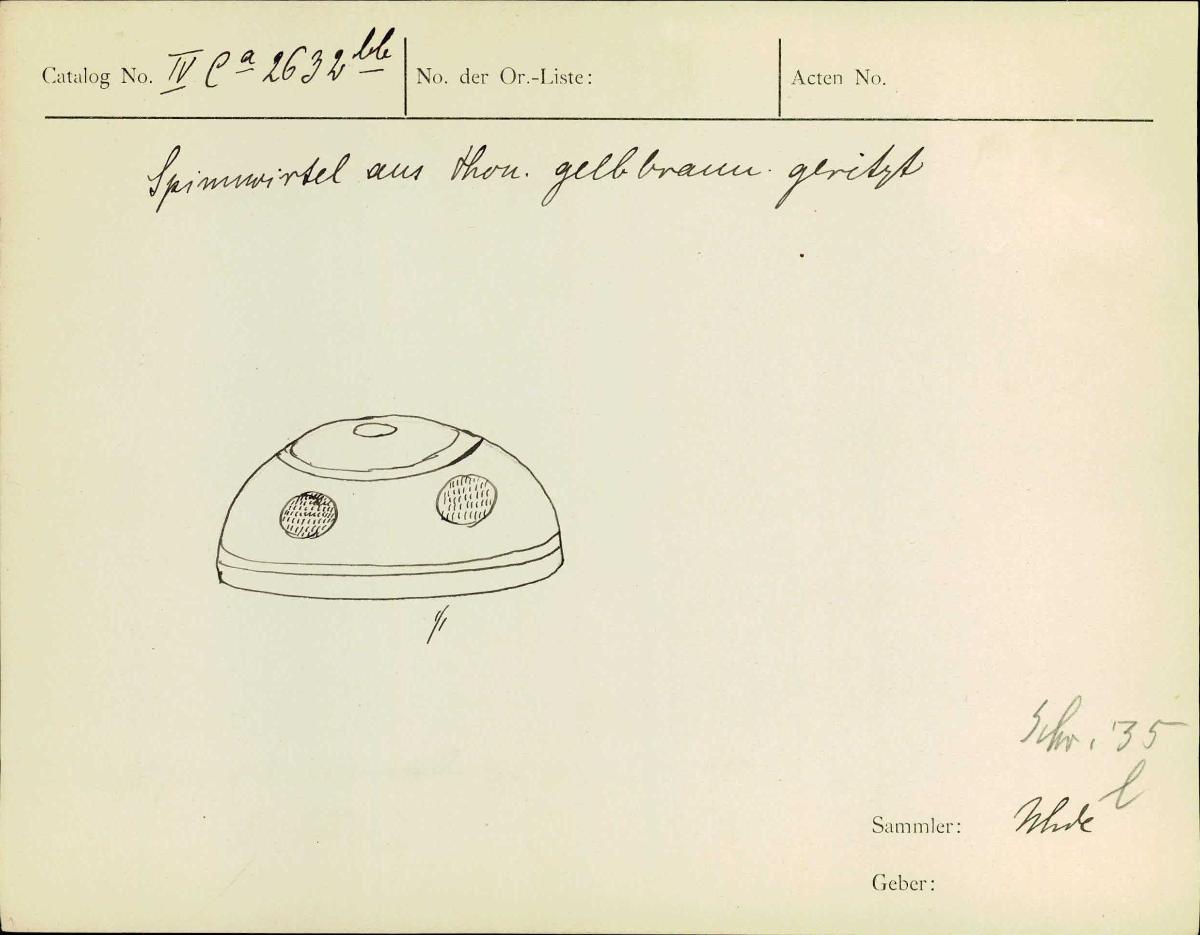 Catalog No. IV Ca 2632 bb
No. der Or.-Liste:
Acten No.
Spinnwirtel aus Thon. gelbbraun. geritzt
1/1
Schr. 35
l
Sammler: Uhde
Geber: